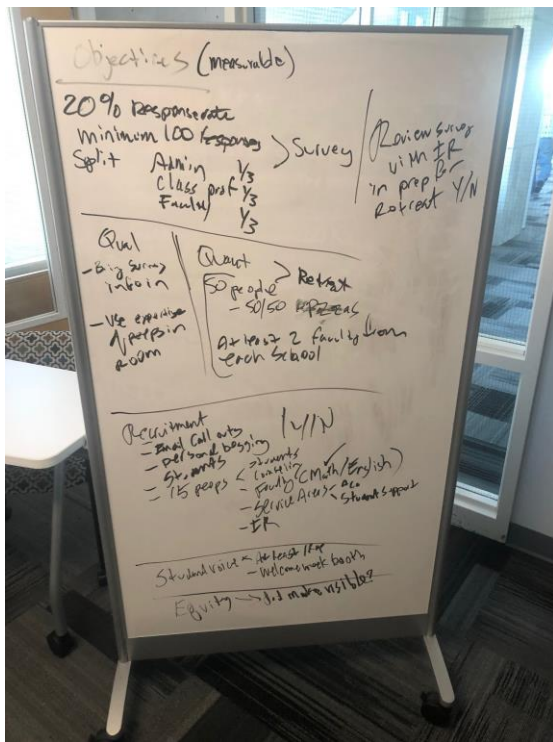 Objectives (measurable)
20% Response rate
minimum 100 responses
Split Admin 1/3
Class prof 1/3
Faculty 1/3
> Survey
Review survey
with IR
in prep for
Retreat Y/N
Qual
- Bring survey
info in
- Use expertise
of peeps in
room
Quant
50 people > Retreat
- 50/50
At least 2 faculty from
each School
Recruitment Y/N
- Email Call outs
- personal begging
- Students
- 15 peeps < Students
Counseling
- Faculty (Math/English)
- Service Areas <
Student support
- IR
Student voice - At least
- Welcome week booth
Equity → did make visible?